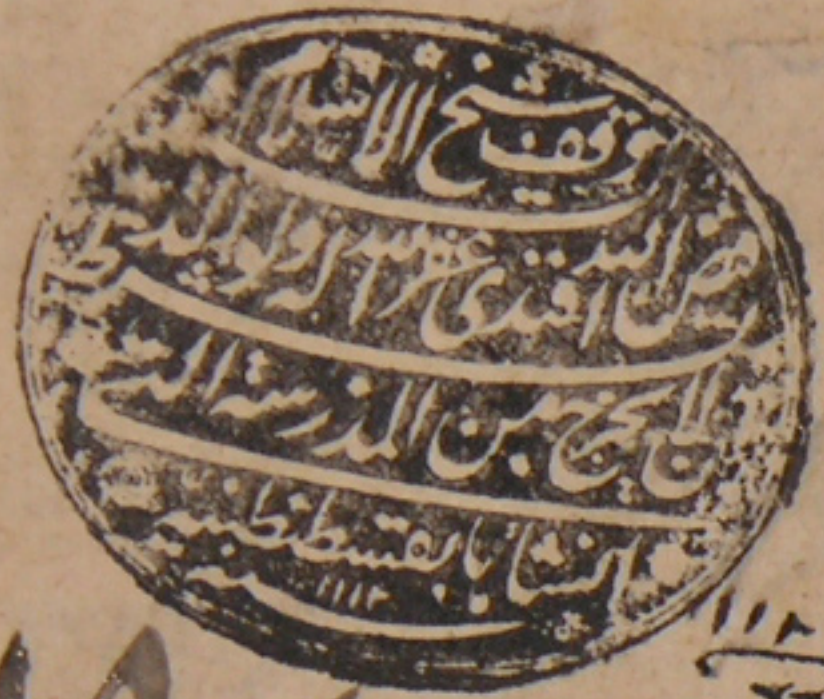 وقف شيخ الاسلام
السيد فيض الله افندى غفر الله له ولوالديه بشرط
ان لا يخرج من المدرسة التى
انشأها بقسطنطنيه
سنه ١١١٢
١١٢